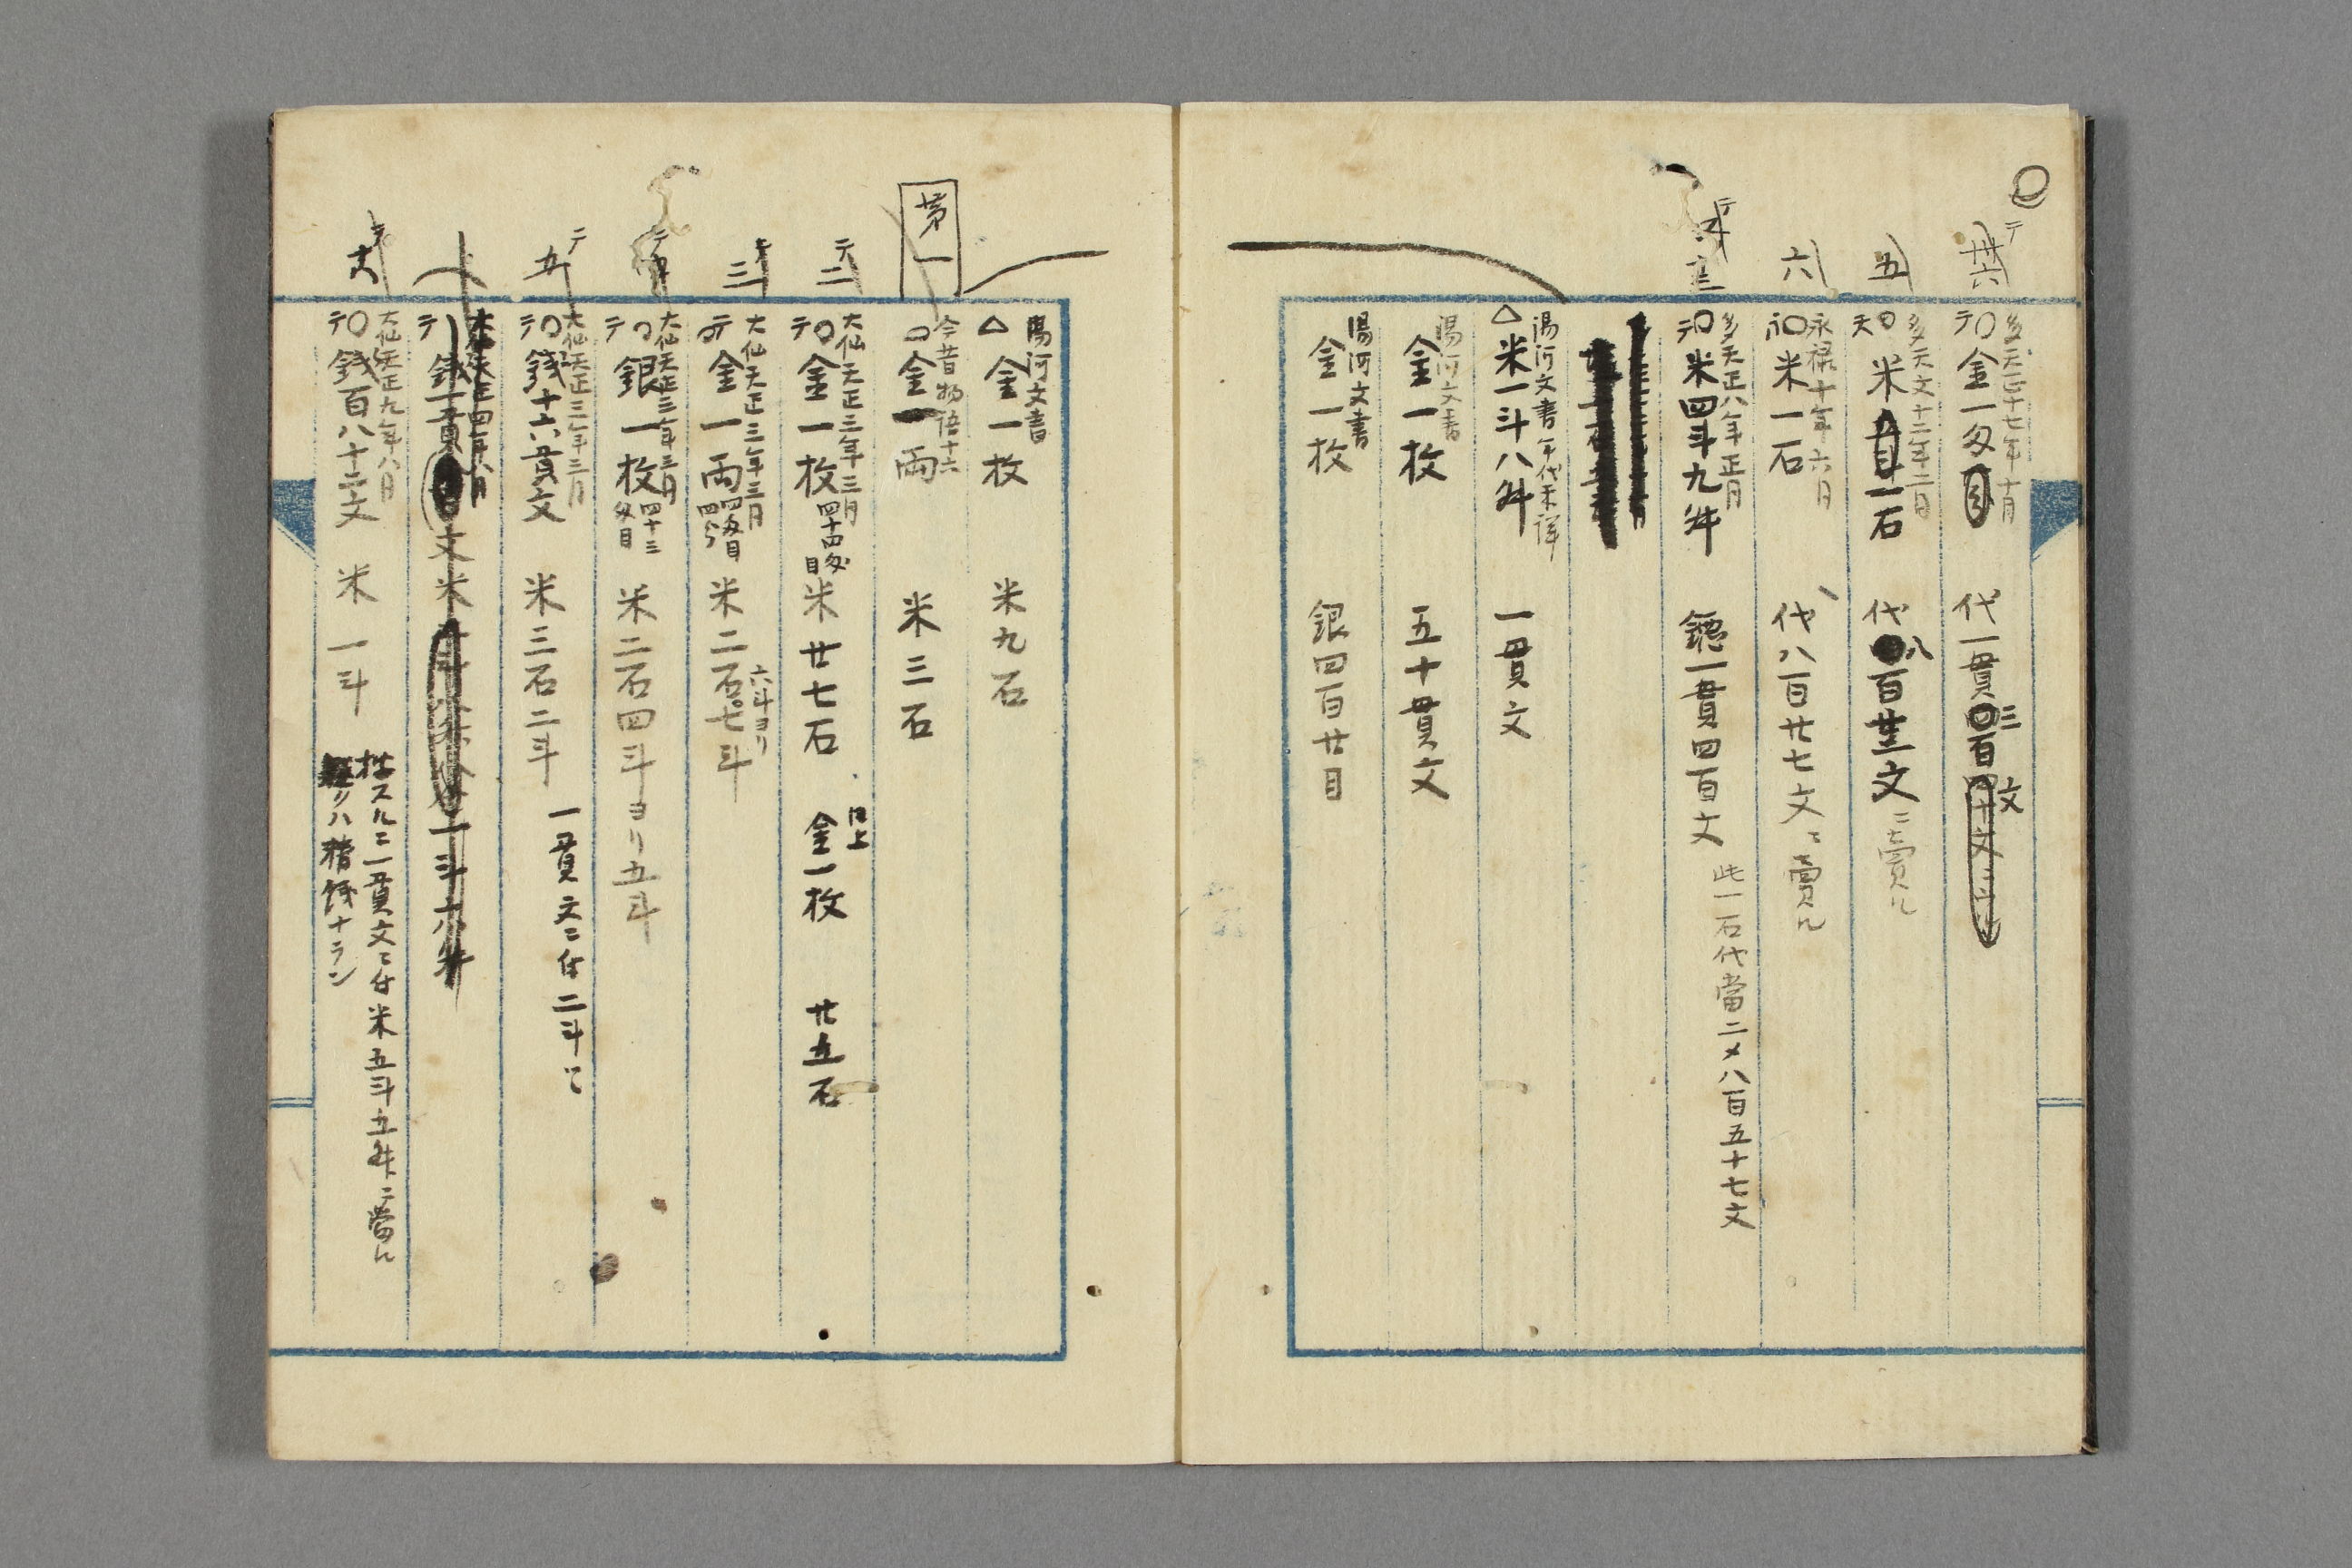 テ
多天正十七年十月
テ〇金一匁目 代一貫三百文
五
多天文十二年二月
天〇米一石 代八百廿文ニ賣ル
六
永禄十年六月
〇米一石 代八百廿七文ニ賣ル
テ
多天正八年正月
テ〇米四斗九舛 鐚一貫四百文 此一石代當二メ八百五十七文
湯河文書年代未詳
△米一斗八舛 一貫文
湯河文書
金一枚 五十貫文
湯河文書
金一枚 銀四百廿目
湯河文書
△金一枚 米九石
第一
今昔物語十六
〇金一両 米三石
テ二
大仙天正三年三月
テ〇金一枚四十四匁目 米廿七石 同上 金一枚 廿五石
三
大仙天正三年三月
テ〇金一両 米二石七斗
六斗ヨリ
大仙天正三年三月
テ〇銀一枚四十三匁目 米二石四斗ヨリ五斗
テ五
大仙天正三年三月
テ〇銭十六貫文 米三石二斗 一貫文ニ付二斗ニ
大仙天正九年八月
テ〇銭百八十二文 米一斗
推スルニ一貫文ニ付米五斗五舛ニ當ル
ハ精銭ナラン